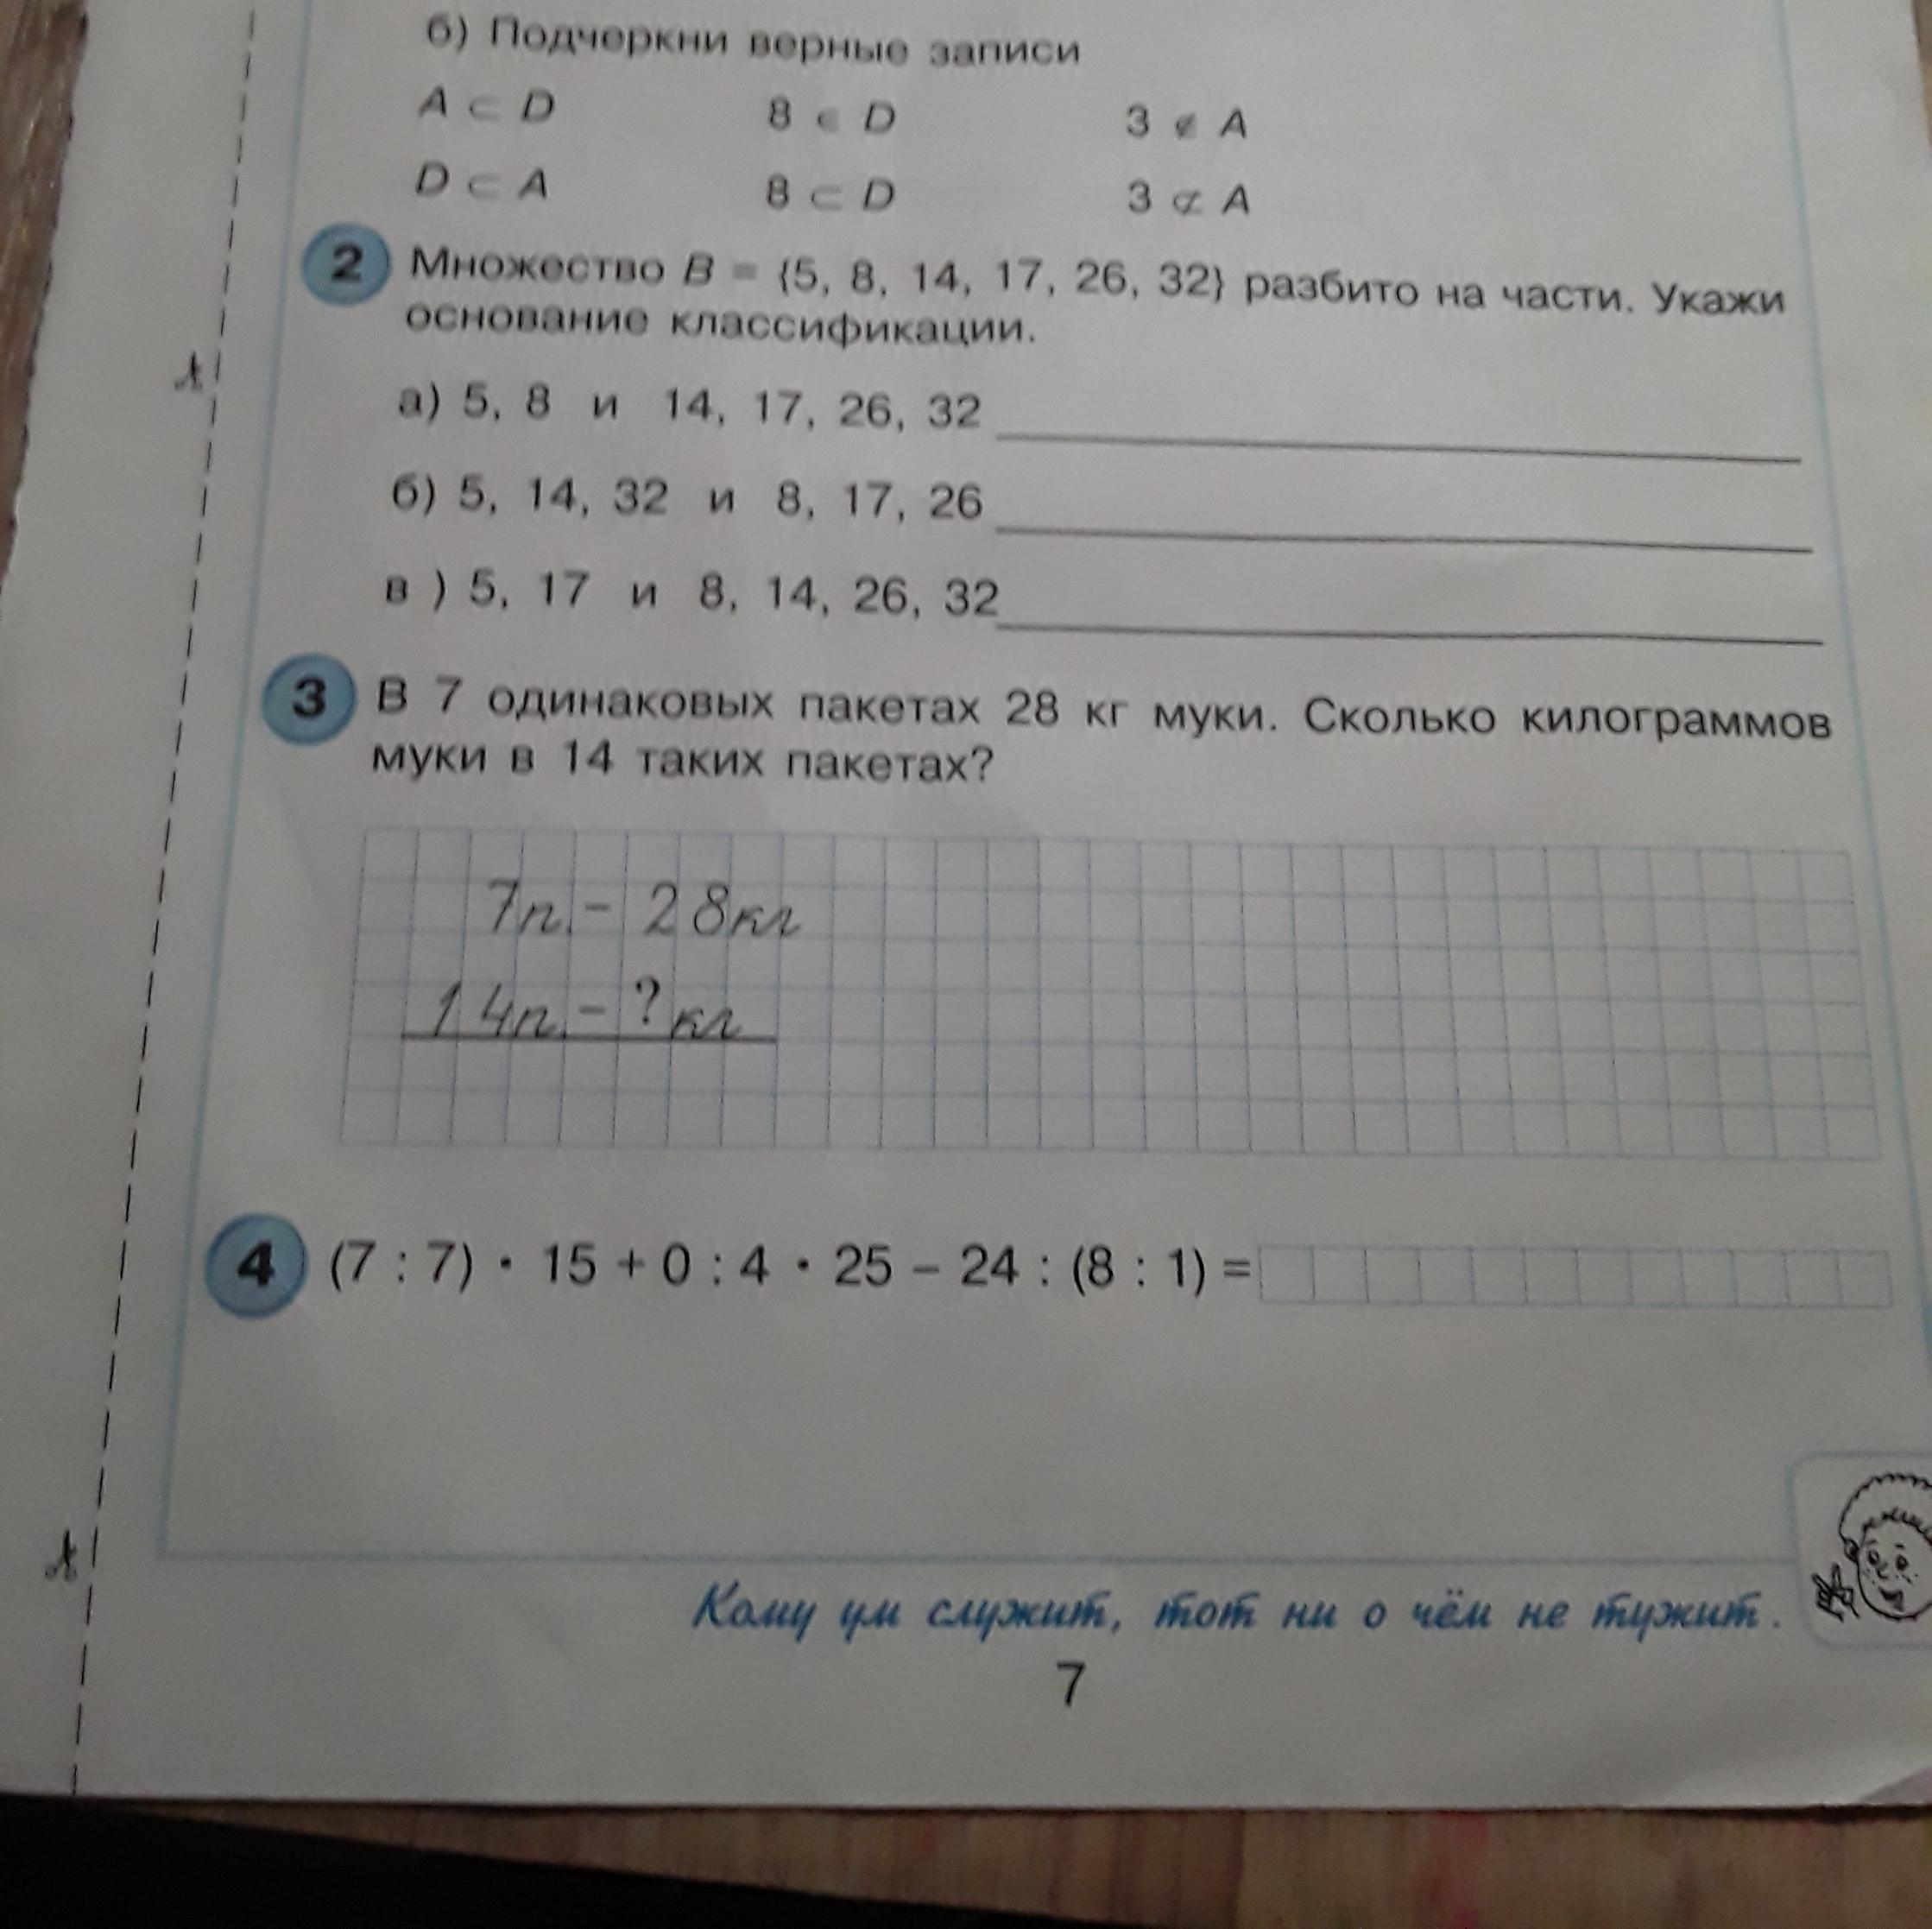 б) Подчеркни верные записи
A ⊂ D 8 ∈ D 3 ∉ A
D ⊂ A 8 ⊂ D 3 ⊄ A
2 Множество B = {5, 8, 14, 17, 26, 32} разбито на части. Укажи
основание классификации.
а) 5, 8 и 14, 17, 26, 32
б) 5, 14, 32 и 8, 17, 26
в ) 5, 17 и 8, 14, 26, 32
3 В 7 одинаковых пакетах 28 кг муки. Сколько килограммов
муки в 14 таких пакетах?
7п. – 28кг
14п. – ?кг
4 (7 : 7) · 15 + 0 : 4 · 25 – 24 : (8 : 1) =
Кому ум служит, тот ни о чём не тужит.
7